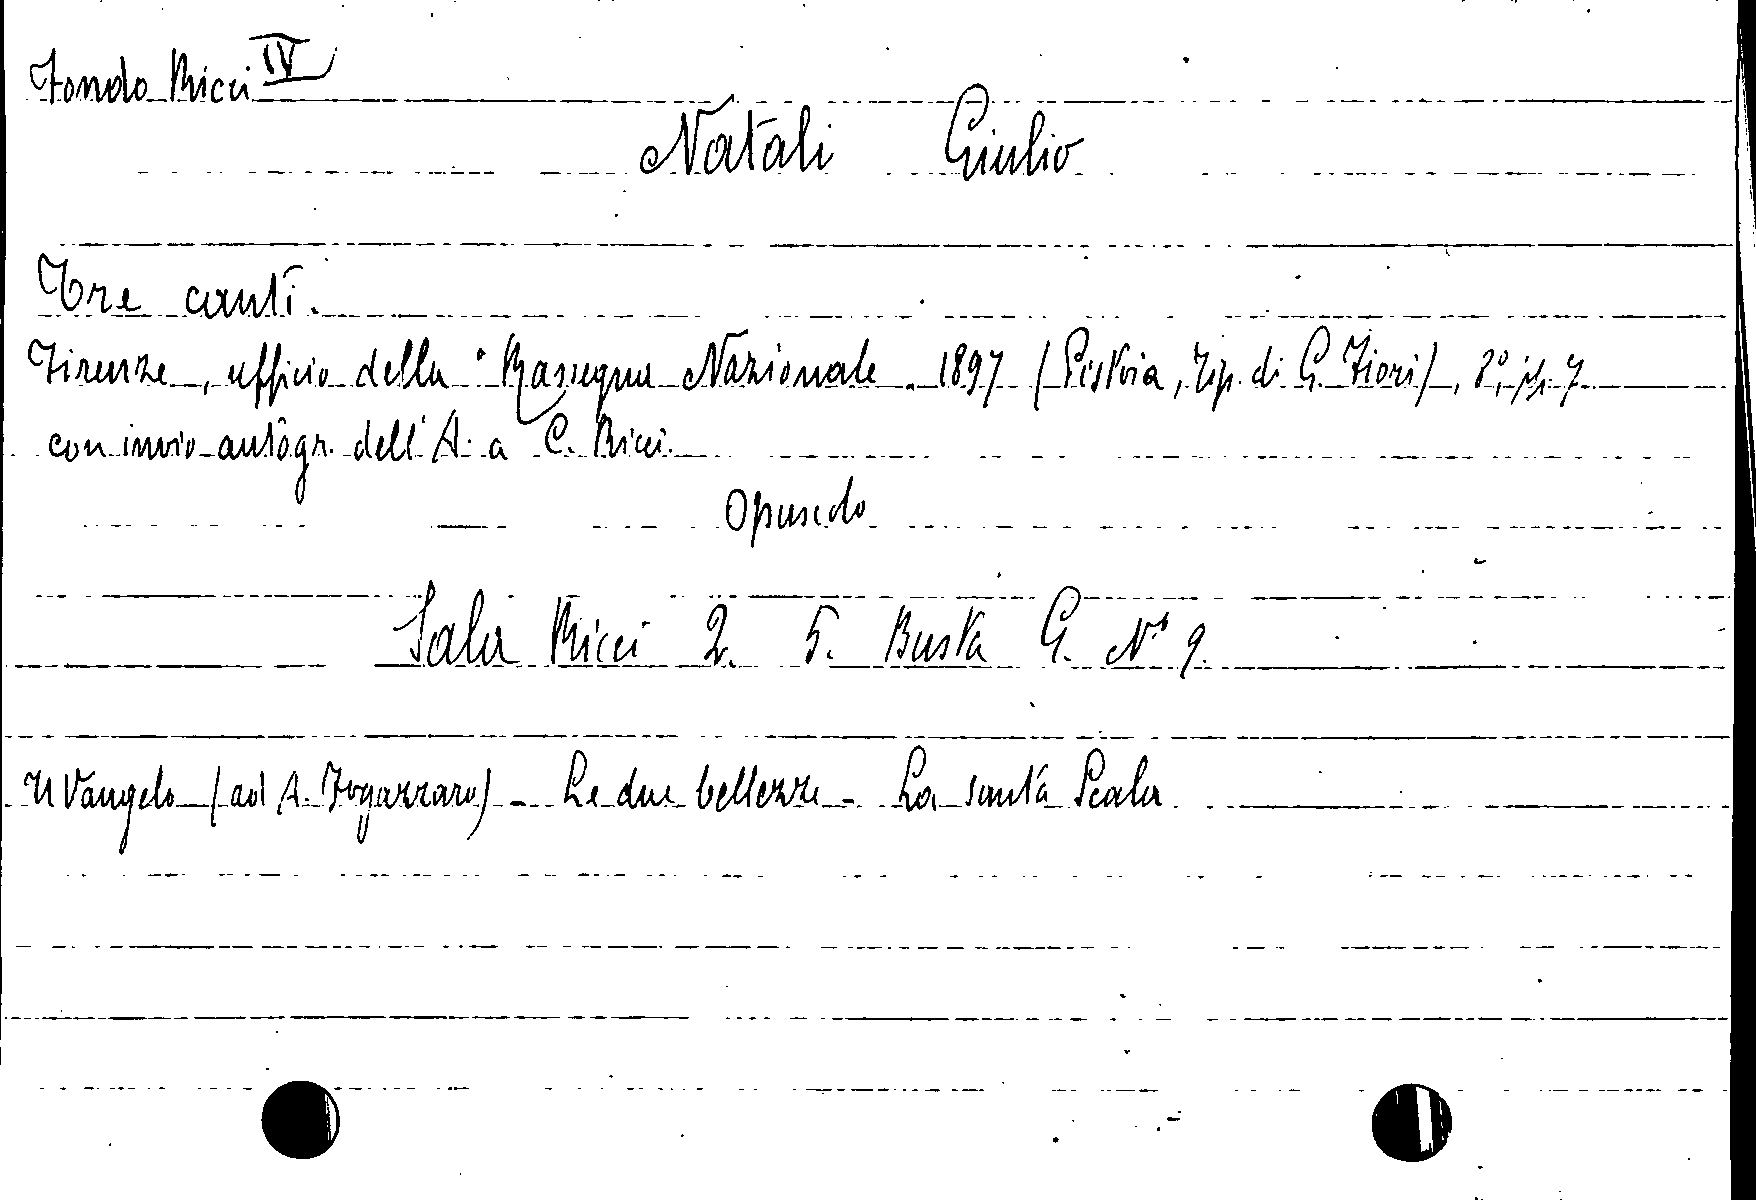 Fondo Ricci IV
Natali Giulio
Tre canti.
Firenze, ufficio della "Rassegna Nazionale. 1897 (Pistoia, Tip. di G. Fiori), 8°, p. 7
con invio autogr. dell'A. a C. Ricci.
Opuscolo
Sala Ricci 2. 5. Busta G. N° 9.
Il Vangelo (ad A. Fogazzaro) - Le due bellezze - La santa Scala